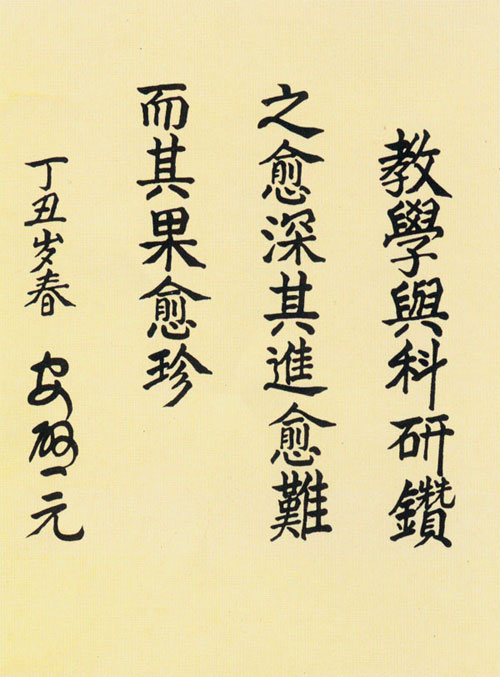 教學與科研鑽
之愈深其進愈難
而其果愈珍
丁丑岁春
安啓一元